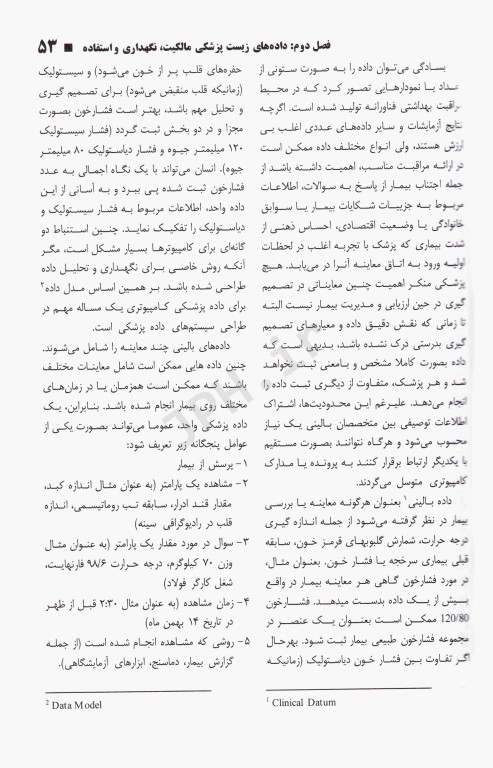 فصل دوم: داده‌های زیست پزشکی مالکیت، نگهداری و استفاده ■ ۵۳
بسادگی می‌توان داده را به صورت ستونی از
عداد یا نمودارهایی تصور کرد که در محیط
مراقبت بهداشتی فناورانه تولید شده است. اگرچه
نتایج آزمایشات و سایر داده‌های عددی اغلب بی
ارزش هستند، ولی انواع مختلف داده ممکن است
در ارائه مراقبت مناسب، اهمیت داشته باشد از
جمله اجتناب بیمار از پاسخ به سوالات، اطلاعات
مربوط به جزییات شکایات بیمار یا سوابق
خانوادگی یا وضعیت اقتصادی، احساس ذهنی از
شدت بیماری که پزشک با تجربه اغلب در لحظات
اولیه ورود به اتاق معاینه آنرا در می‌یابد. هیچ
پزشکی منکر اهمیت چنین معایناتی در تصمیم
گیری در حین ارزیابی و مدیریت بیمار نیست البته
تا زمانی که نقش دقیق داده و معیارهای تصمیم
گیری بدرستی درک نشده باشد، بدیهی است که
داده بصورت کاملا مشخص و بامعنی ثبت نخواهد
شد و هر پزشک، متفاوت از دیگری ثبت داده را
انجام می‌دهد. علیرغم این محدودیت‌ها، اشتراک
اطلاعات توصیفی بین متخصصان بالینی یک نیاز
محسوب می‌شود و هرگاه نتوانند بصورت مستقیم
با یکدیگر ارتباط برقرار کنند به پرونده یا مدارک
کامپیوتری متوسل می‌گردند.
داده بالینی¹ بعنوان هرگونه معاینه یا بررسی
بیمار در نظر گرفته می‌شود از جمله اندازه گیری
درجه حرارت، شمارش گلبولهای قرمز خون، سابقه
قبلی بیماری سرخجه یا فشار خون. بعنوان مثال،
در مورد فشارخون گاهی هر معاینه بیمار در واقع
بیش از یک داده بدست میدهد. فشارخون
120/80 ممکن است بعنوان یک عنصر در
مجموعه فشارخون طبیعی بیمار ثبت شود. بهرحال
اگر تفاوت بین فشار خون دیاستولیک (زمانیکه
¹ Clinical Datum
حفره‌های قلب پر از خون می‌شود) و سیستولیک
(زمانیکه قلب منقبض می‌شود) برای تصمیم گیری
و تحلیل مهم باشد، بهتر است فشارخون بصورت
مجزا و در دو بخش ثبت گردد (فشار سیستولیک
۱۲۰ میلیمتر جیوه و فشار دیاستولیک ۸۰ میلیمتر
جیوه). انسان می‌تواند با یک نگاه اجمالی به عدد
فشارخون ثبت شده پی ببرد و به آسانی از این
داده واحد، اطلاعات مربوط به فشار سیستولیک و
دیاستولیک را تفکیک نمایند. چنین استنباط دو
گانه‌ای برای کامپیوترها بسیار مشکل است، مگر
آنکه روش خاصی برای نگهداری و تحلیل داده
طراحی شده باشد. بر همین اساس مدل داده²
برای داده پزشکی کامپیوتری یک مساله مهم در
طراحی سیستم‌های داده پزشکی است.
داده‌های بالینی چند معاینه را شامل می‌شوند.
چنین داده هایی ممکن است شامل معاینات مختلف
باشند که ممکن است همزمان یا در زمان‌های
مختلف روی بیمار انجام شده باشد. بنابراین، یک
داده پزشکی واحد، عموما می‌تواند بصورت یکی از
عوامل پنجگانه زیر تعریف شود:
۱- پرسش از بیمار
۲- مشاهده یک پارامتر (به عنوان مثال اندازه کبد،
مقدار قند ادرار، سابقه تب روماتیسمی، اندازه
قلب در رادیوگرافی سینه)
۳- سوال در مورد مقدار یک پارامتر (به عنوان مثال
وزن ۷۰ کیلوگرم، درجه حرارت ۹۸/۶ فارنهایت،
شغل کارگر فولاد)
۴- زمان مشاهده (به عنوان مثال ۲:۳۰ قبل از ظهر
در تاریخ ۱۴ بهمن ماه)
۵- روشی که مشاهده انجام شده است (از جمله
گزارش بیمار، دماسنج، ابزارهای آزمایشگاهی).
² Data Model